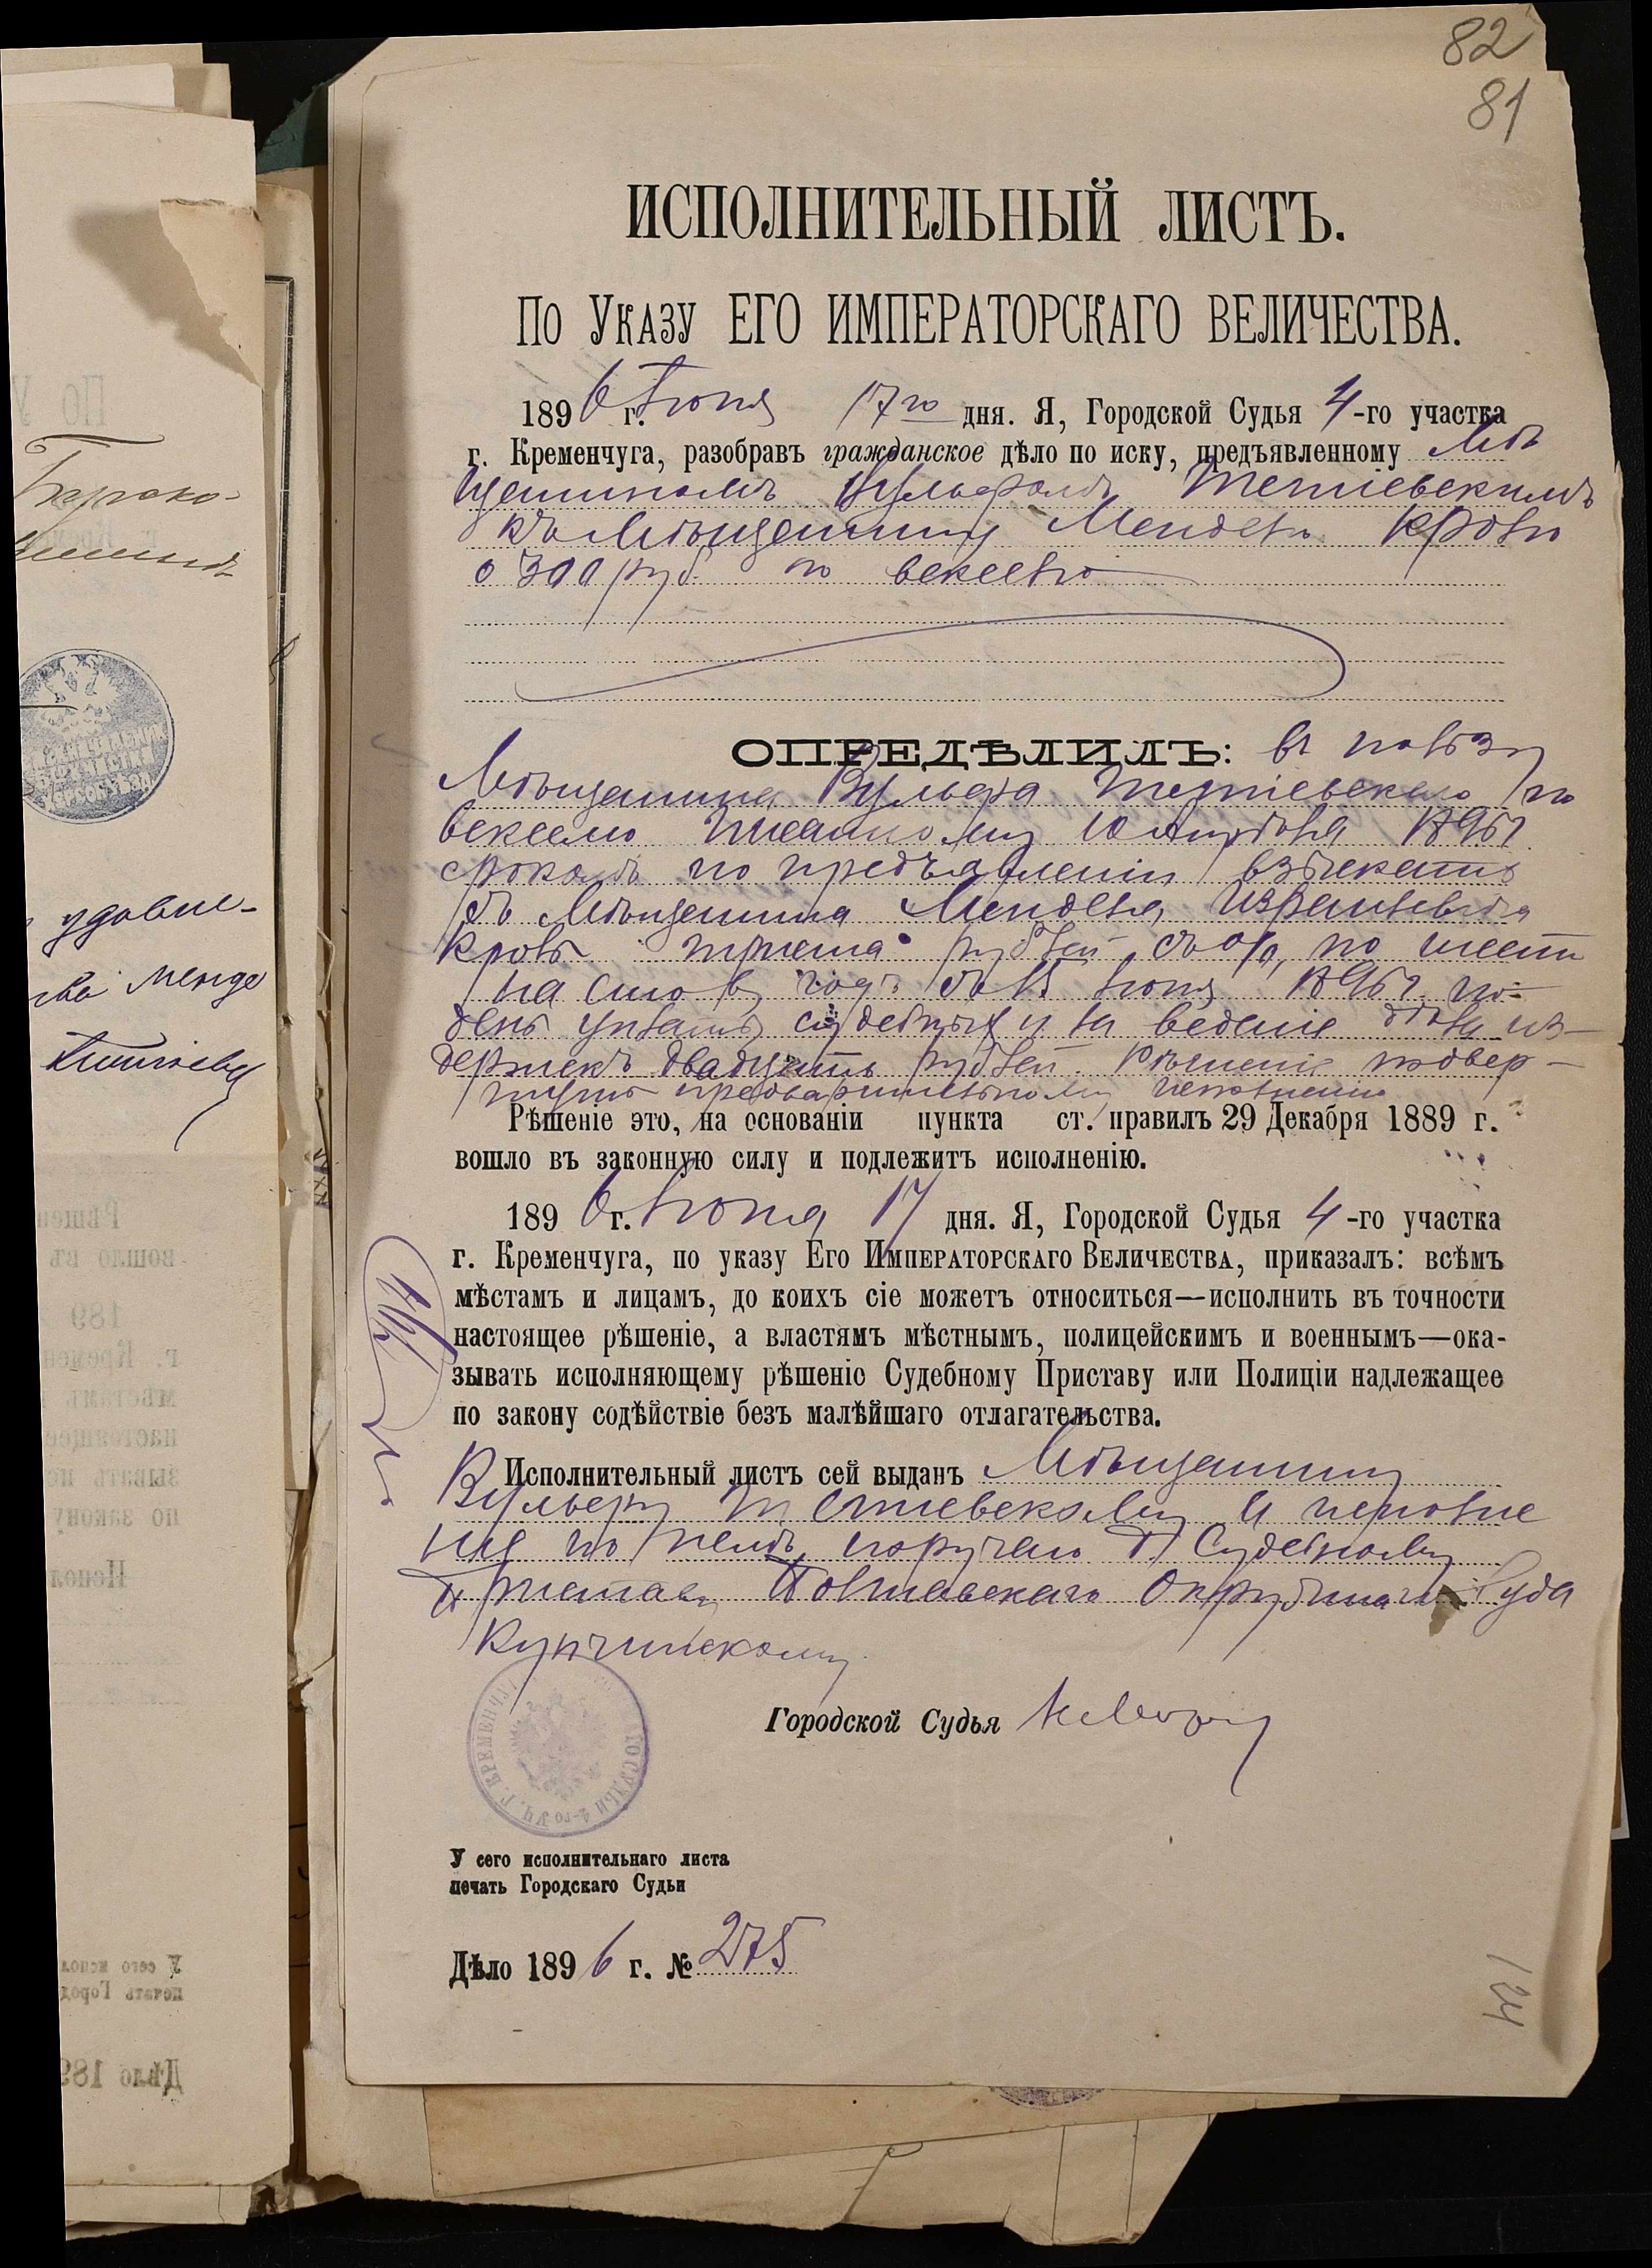 82
81
ИСПОЛНИТЕЛЬНЫЙ ЛИСТЪ.
По Указу ЕГО ИМПЕРАТОРСКАГО ВЕЛИЧЕСТВА.
1896 г. Іюня 17го дня. Я, Городской Судья 4-го участка
г. Кременчуга, разобравъ гражданское дѣло по иску, предъявленному Мѣ
щаниномъ Вульфомъ Тетіевскимъ
къ Мѣщанину Мендель Кроль
о 300 руб. по векселю
ОПРЕДѢЛИЛЪ: въ пользу
Мѣщанина Вульфа Тетіевскаго по
векселю писанному 10 1896 г.
срокомъ по предъявленіи взыскать
съ Мѣщанина Менделя Израилевича
Кроль триста рублей съ % по шести
на сто въ годъ съ 15 Іюня 1896 г. по
день уплаты, судебныхъ и за веденіе дѣла из-
держекъ двадцать рублей. Рѣшеніе подвер-
гнуть предварительному исполненію
Рѣшеніе это, на основаніи пункта ст. правилъ 29 Декабря 1889 г.
вошло въ законную силу и подлежитъ исполненію.
1896 г. Іюня 17 дня. Я, Городской Судья 4-го участка
г. Кременчуга, по указу Его Императорскаго Величества, приказалъ: всѣмъ
мѣстамъ и лицамъ, до коихъ сіе можетъ относиться—исполнить въ точности
настоящее рѣшеніе, а властямъ мѣстнымъ, полицейскимъ и военнымъ—ока-
зывать исполняющему рѣшеніе Судебному Приставу или Полиціи надлежащее
по закону содѣйствіе безъ малѣйшаго отлагательства.
Исполнительный листъ сей выданъ Мѣщанину
Вульфу Тетіевскому и исполне
ніе по немъ поручено Судебному
Приставу Полтавскаго Окружнаго Суда
Купчинскому
Городской Судья
У сего исполнительнаго листа
печать Городскаго Судьи
Дѣло 1896 г. № 275
124